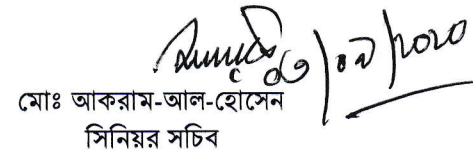 ০৩/০৯/২০২০
মোঃ আকরাম-আল-হোসেন
সিনিয়র সচিব